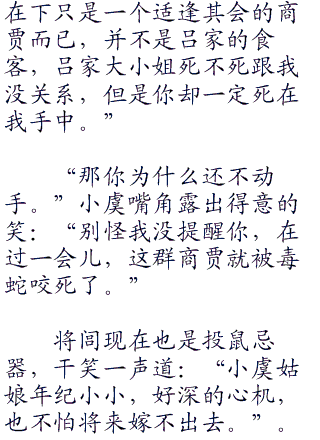 在下只是一个适逢其会的商
贾而已，并不是吕家的食
客，吕家大小姐死不死跟我
没关系，但是你却一定死在
我手中。”
“那你为什么还不动
手。”小虞嘴角露出得意的
笑：“别怪我没提醒你，在
过一会儿，这群商贾就被毒
蛇咬死了。”
将闾现在也是投鼠忌
器，干笑一声道：“小虞姑
娘年纪小小，好深的心机，
也不怕将来嫁不出去。”。